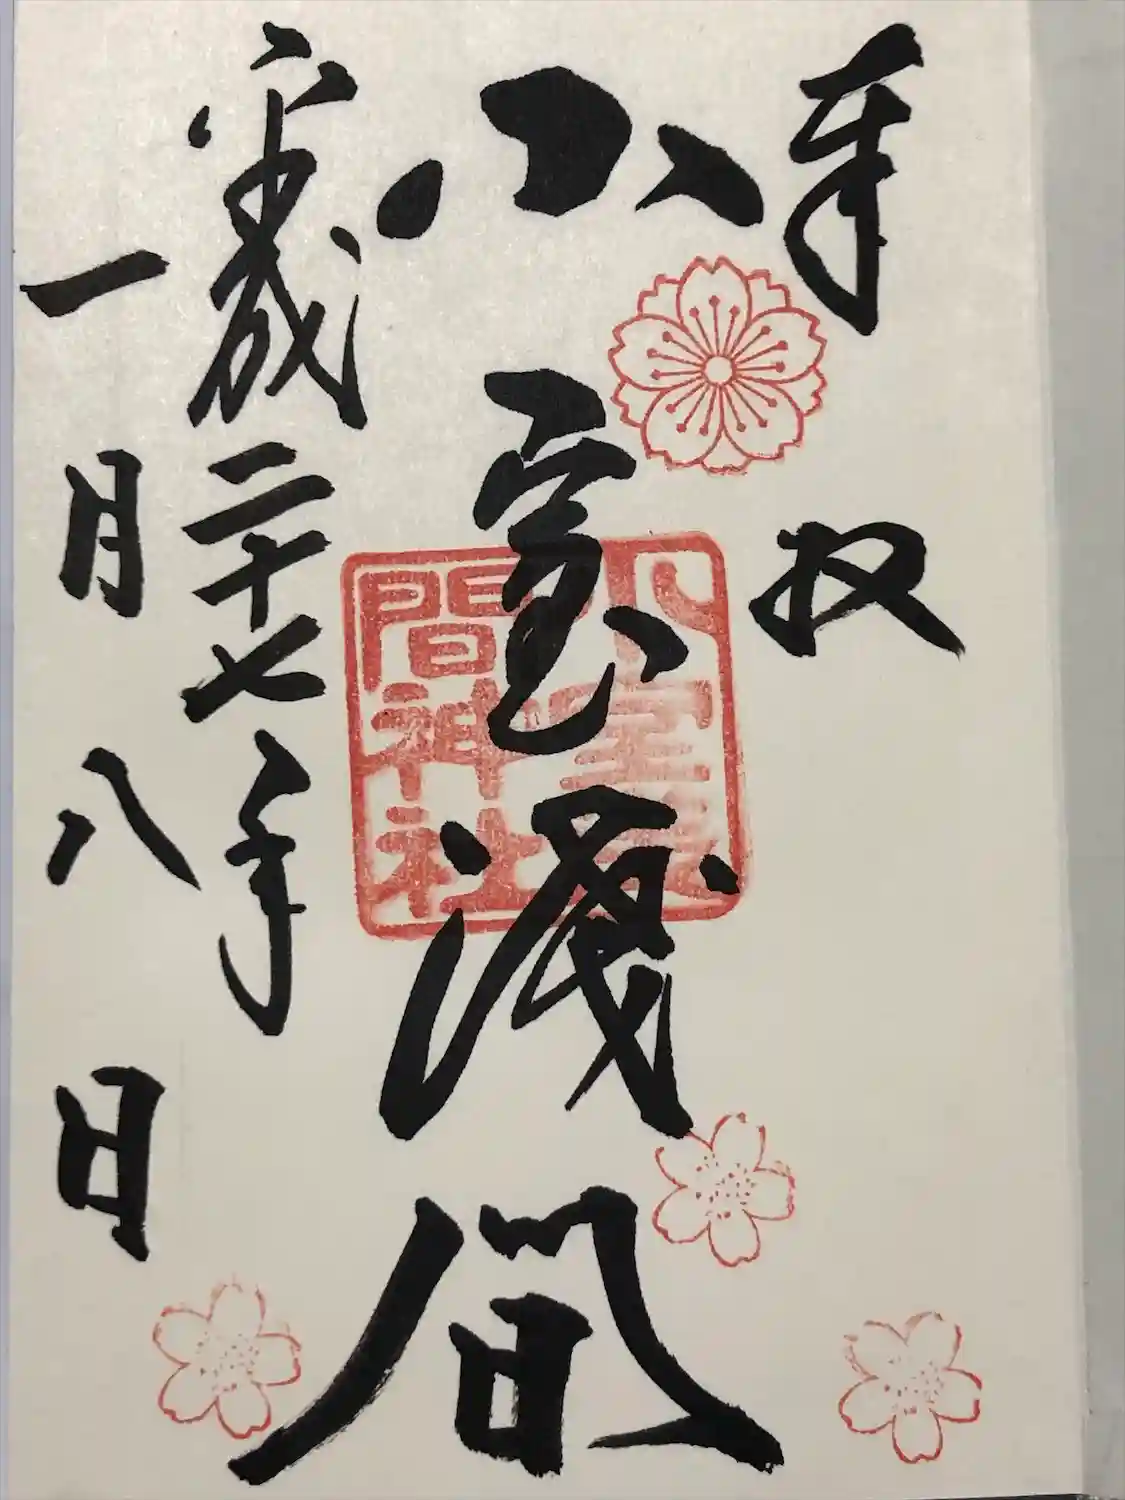 奉拝
小室浅間
平成二十七年
一月八日
小室浅
間神社